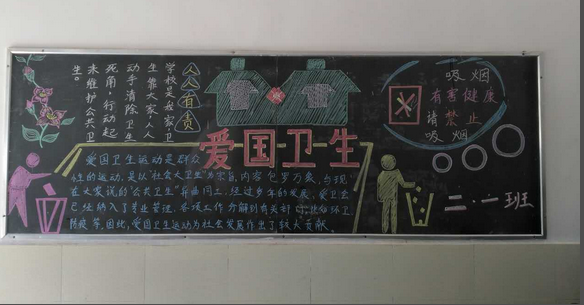 人人有责
学校是我家,卫
生靠大家,人人
动手清除卫生
死角,行动起
来维护公共卫
生。
爱国卫生
爱国卫生运动是群众
性的运动,是以"社会大卫生"为宗旨,内容包罗万象,与现
在大家说的"公共卫生"异曲同工,经过多年的发展,爱卫会
已经纳入了专业管理,各项工作分解到有关科
防疫等,因此,爱国卫生运动为社会发展作出了较大贡献。
吸烟
有害健康
请禁止
吸烟
二·一班